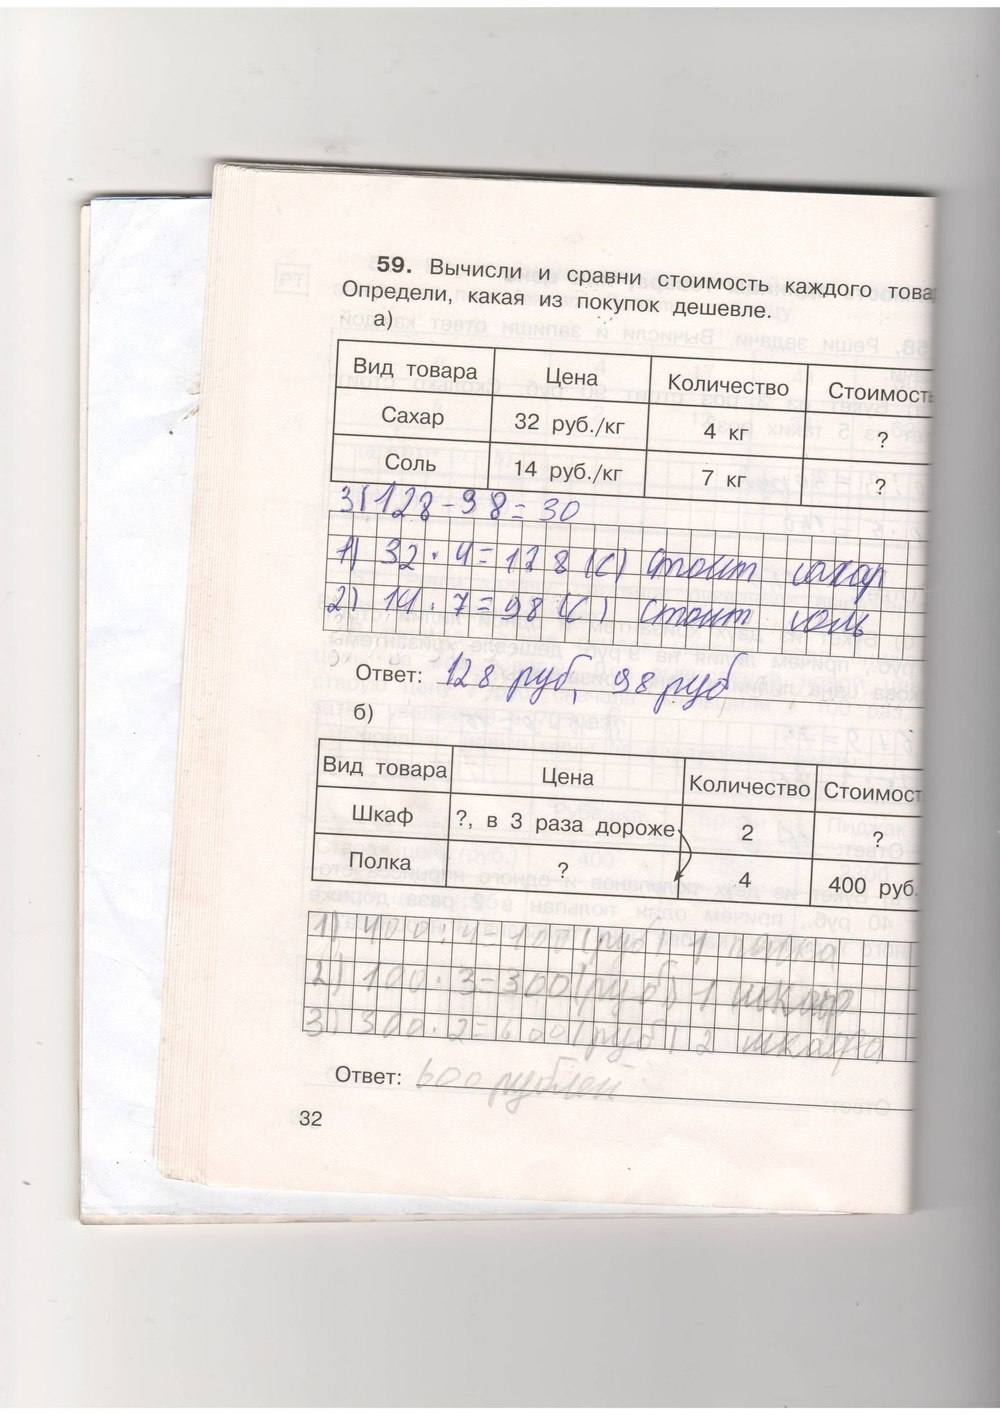 59. Вычисли и сравни стоимость каждого това
Определи, какая из покупок дешевле.
а)
Вид товара Цена Количество Стоимость
Сахар 32 руб./кг 4 кг ?
Соль 14 руб./кг 7 кг ?
3) 128 - 98 = 30
1) 32 · 4 = 128 (с) стоит сахар
2) 14 · 7 = 98 (с) стоит соль
Ответ: 128 руб, 98 руб
б)
Вид товара Цена Количество Стоимост
Шкаф ?, в 3 раза дороже 2 ?
Полка ? 4 400 руб.
1) 400 : 4 = 100 (руб) 1 полка
2) 100 · 3 = 300 (руб) 1 шкаф
3) 300 · 2 = 600 (руб) 2 шкафа
Ответ: 600 рублей
32